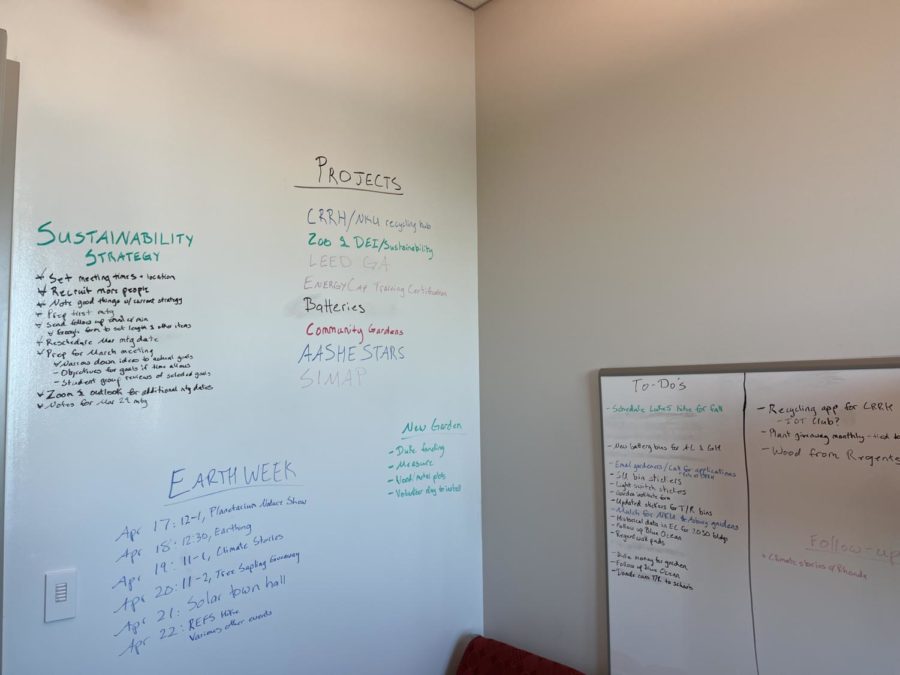 SUSTAINABILITY
STRATEGY
Set meeting times + location
Recruit more people
Note good things w/current strategy
Prep first mtg
Send follow up
Google form to set length & other items
Reschedule Mar mtg date
Prep for March meeting
Narrow down ideas to actual goals
- Objectives for goals if time allows
- Student group reviews of selected goals
Zoom & outlook for additional mtg dates
Notes for Mar 29 mtg
PROJECTS
CRRH/NKU recycling hub
Zoo & DEI/Sustainability
LEED GA
ENERGYCAP Training Certification
Batteries
Community Gardens
AASHE STARS
SIMAP
New Garden
- Duke funding
- Measure
- Wood/metal plots
- Volunteer day to install
EARTH WEEK
Apr 17: 12-1, Planetarium Nature Show
Apr 18: 12:30, Earthing
Apr 19: 11-1, Climate Stories
Apr 20: 11-2, Tree Sapling Giveaway
Apr 21: Solar town hall
Apr 22: REFS Hike
Various other events
TO-DO's
- Schedule Lukes hike for fall
- New battery bins for
- Email gardeners/Call for applications
bin stickers
- Light switch stickers
- Garden institute form
- Updated stickers for T/R bins
- Mulch for NKU gardens
- Historical data in EC for 2030 bldgs
- Follow up Blue Ocean
- Request walk pads
- Duke money for garden
- Follow up Blue Ocean
- Donate cans T/R to schools
- Recycling app for CRRH
- IOT Club?
- Plant giveaway monthly - tied to
- Wood from Rrogents
Follow-up
Climate stories